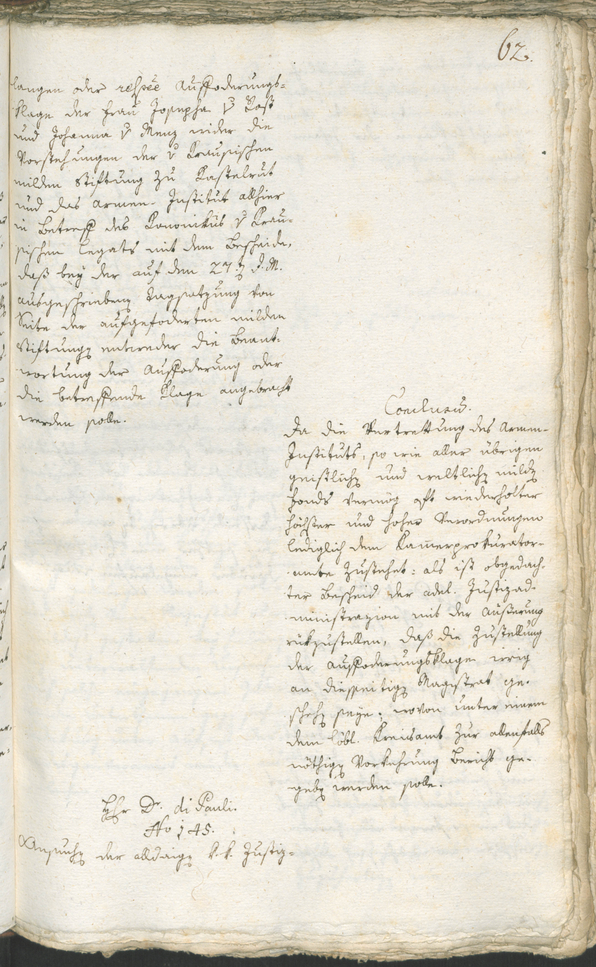 62.
langen oder resp̄ee Aufforderungs-
klage der Frau Josepha v
und Johanna v Menz wider die
Vorstehungen der v Krausischen
milden Stiftung zu Kastelrut
und das Armen-Institut allhier
in Betreff des Kanonikus v Krau-
sischen Legats mit dem Bescheide,
daß bey der auf den 27t d. M.
ausgeschriebenen Tagsatzung von
Seite der aufgeforderten milden
Stiftungen entweder die Beant-
wortung der Aufforderung oder
die betreffende Klage angebracht
werden solle.
Conclusum.
Da die Vertrettung des Armen-
Instituts, so wie aller übrigen
geistlichen und weltlichen milden
Fonds vermög oft wiederholter
höchster und hoher Verordnungen
lediglich dem Kam̄erprokurator-
amte zustehet: als ist obgedach-
ter Bescheid der adel. Justizad-
ministrazion mit der Äußerung
rükzustellen, daß die Zustellung
der Aufforderungsklage irrig
an diesseitigen Magistrat ge-
schehen seye, wovon unter einem
dem löbl. Kreisamt zur allenfalls
nöthigen Vorkehrung Bericht ge-
geben werden solle.
Hr Dr. di Pauli.
No 145.
Ansuchen der alldaigen k. k. Justiz-